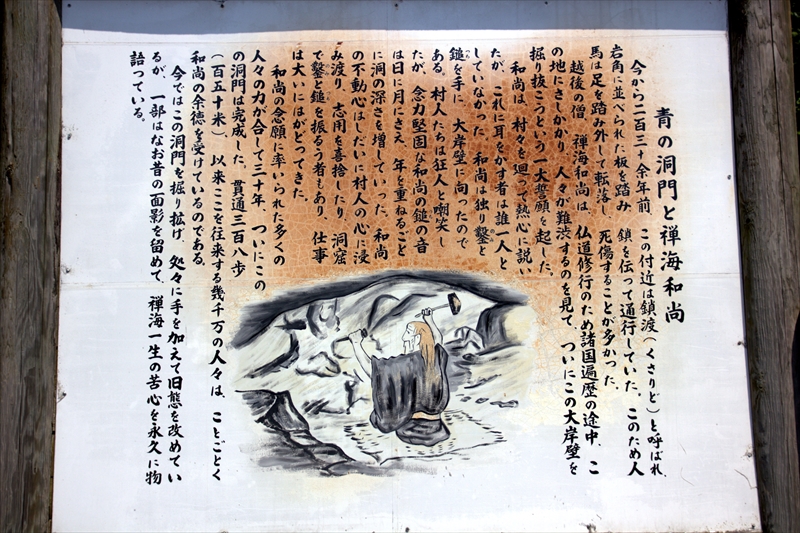 青の洞門と禅海和尚
今から二百三十余年前、この付近は鎖渡(くさりど)と呼ばれ、
岩角に並べられた板を踏み、鎖を伝って通行していた。このため人
馬は足を踏み外して転落し、死傷することが多かった。
越後の僧、禅海和尚は、仏道修行のため諸国遍歴の途中、こ
の地にさしかかり、人々が難渋するのを見て、ついにこの大岸壁を
掘り抜こうという一大誓願を起した。
和尚は、村々を廻って熱心に説い
たが、これに耳をかす者は誰一人と
していなかった。和尚は独り鑿と
鎚を手に、大岸壁に向ったので
ある。村人たちは狂人と嘲笑し
たが、念力堅固な和尚の鎚の音
は日に月にさえ、年を重ねるごと
に洞の深さを増していった。和尚
の不動心はしだいに村人の心に浸
み渡り、志用を喜捨したり、洞窟
で鑿と鎚を振るう者もあり、仕事
は大いにはがどってきた。
和尚の念願に率いられた多くの
人々の力が合して三十年、ついにこの
の洞門は完成した。貫通三百八歩
(百五十米)、以来ここを往来する幾千万の人々は、ことごとく
和尚の余徳を受けているのである。
今ではこの洞門を掘り拡げ、処々に手を加えて旧態を改めてい
るが、一部はなお昔の面影を留めて、禅海一生の苦心を永久に物
語っている。